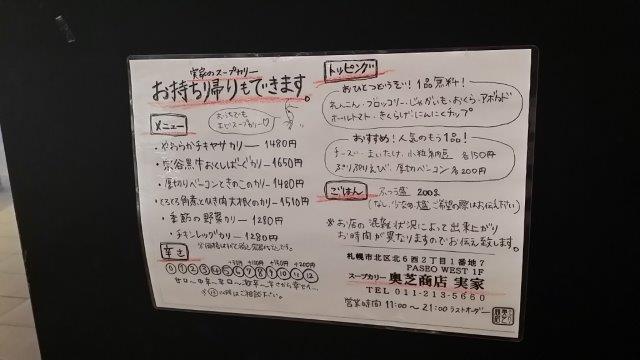 実家のスープカリー
お持ち帰りもできます。
おうちでも
メニュー
・やわらかチキンヤサカリー ― 1480円
・宗谷黒牛おくしばーぐカリー ― 1650円
・厚切りベーコンときのこのカリー ― 1480円
・とろとろ角煮と大根のカリー ― 1510円
・季節の野菜カリー ― 1280円
・チキンレッグカリー ― 1280円
辛さ
+100円 +200円
0 1 2 3 4 5 6 7 8 9 10 11 12
トッピング
おひとつどうぞ! 1品無料!
れんこん・ブロッコリー・じゃがいも・おくら・アボカド
ホールトマト・きくらげ・にんにくチップ
おすすめ! 人気のもう1品!
チーズ・まいたけ・小粒納豆 各150円
ぷりぷりえび・厚切りベーコン 各200円
ごはん
ふつう盛 200g
(なし・少なめ・大盛 ご希望の際はお伝え下さい)
※お店の混雑状況によって出来上がり
お時間が異なりますのでお伝え致します。
札幌市北区北6西2丁目1番地7
PASEO WEST 1F
スープカリー 奥芝商店 実家
TEL 011-213-5660
営業時間 11:00～21:00ラストオーダー